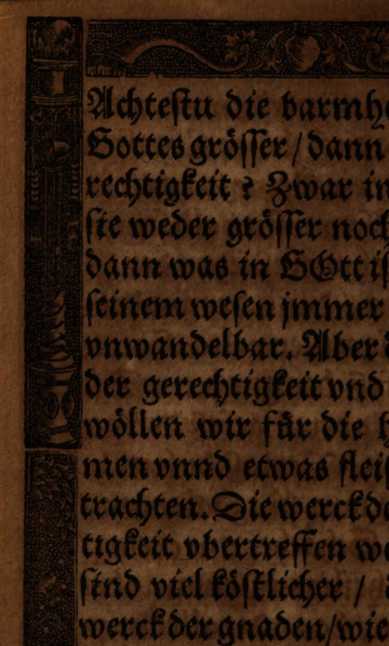 Achtestu die barmh
Gottes grösser / dann
rechtigkeit ? Zwar in
sie weder grösser noch
dann was in GOtt is
seinem wesen jmmer
vnwandelbar. Aber
der gerechtigkeit vnd
wöllen wir für die h
men vnnd etwas fleis
trachten. Die werck de
tigkeit vbertreffen we
sind viel köstlicher /
werck der gnaden/wie